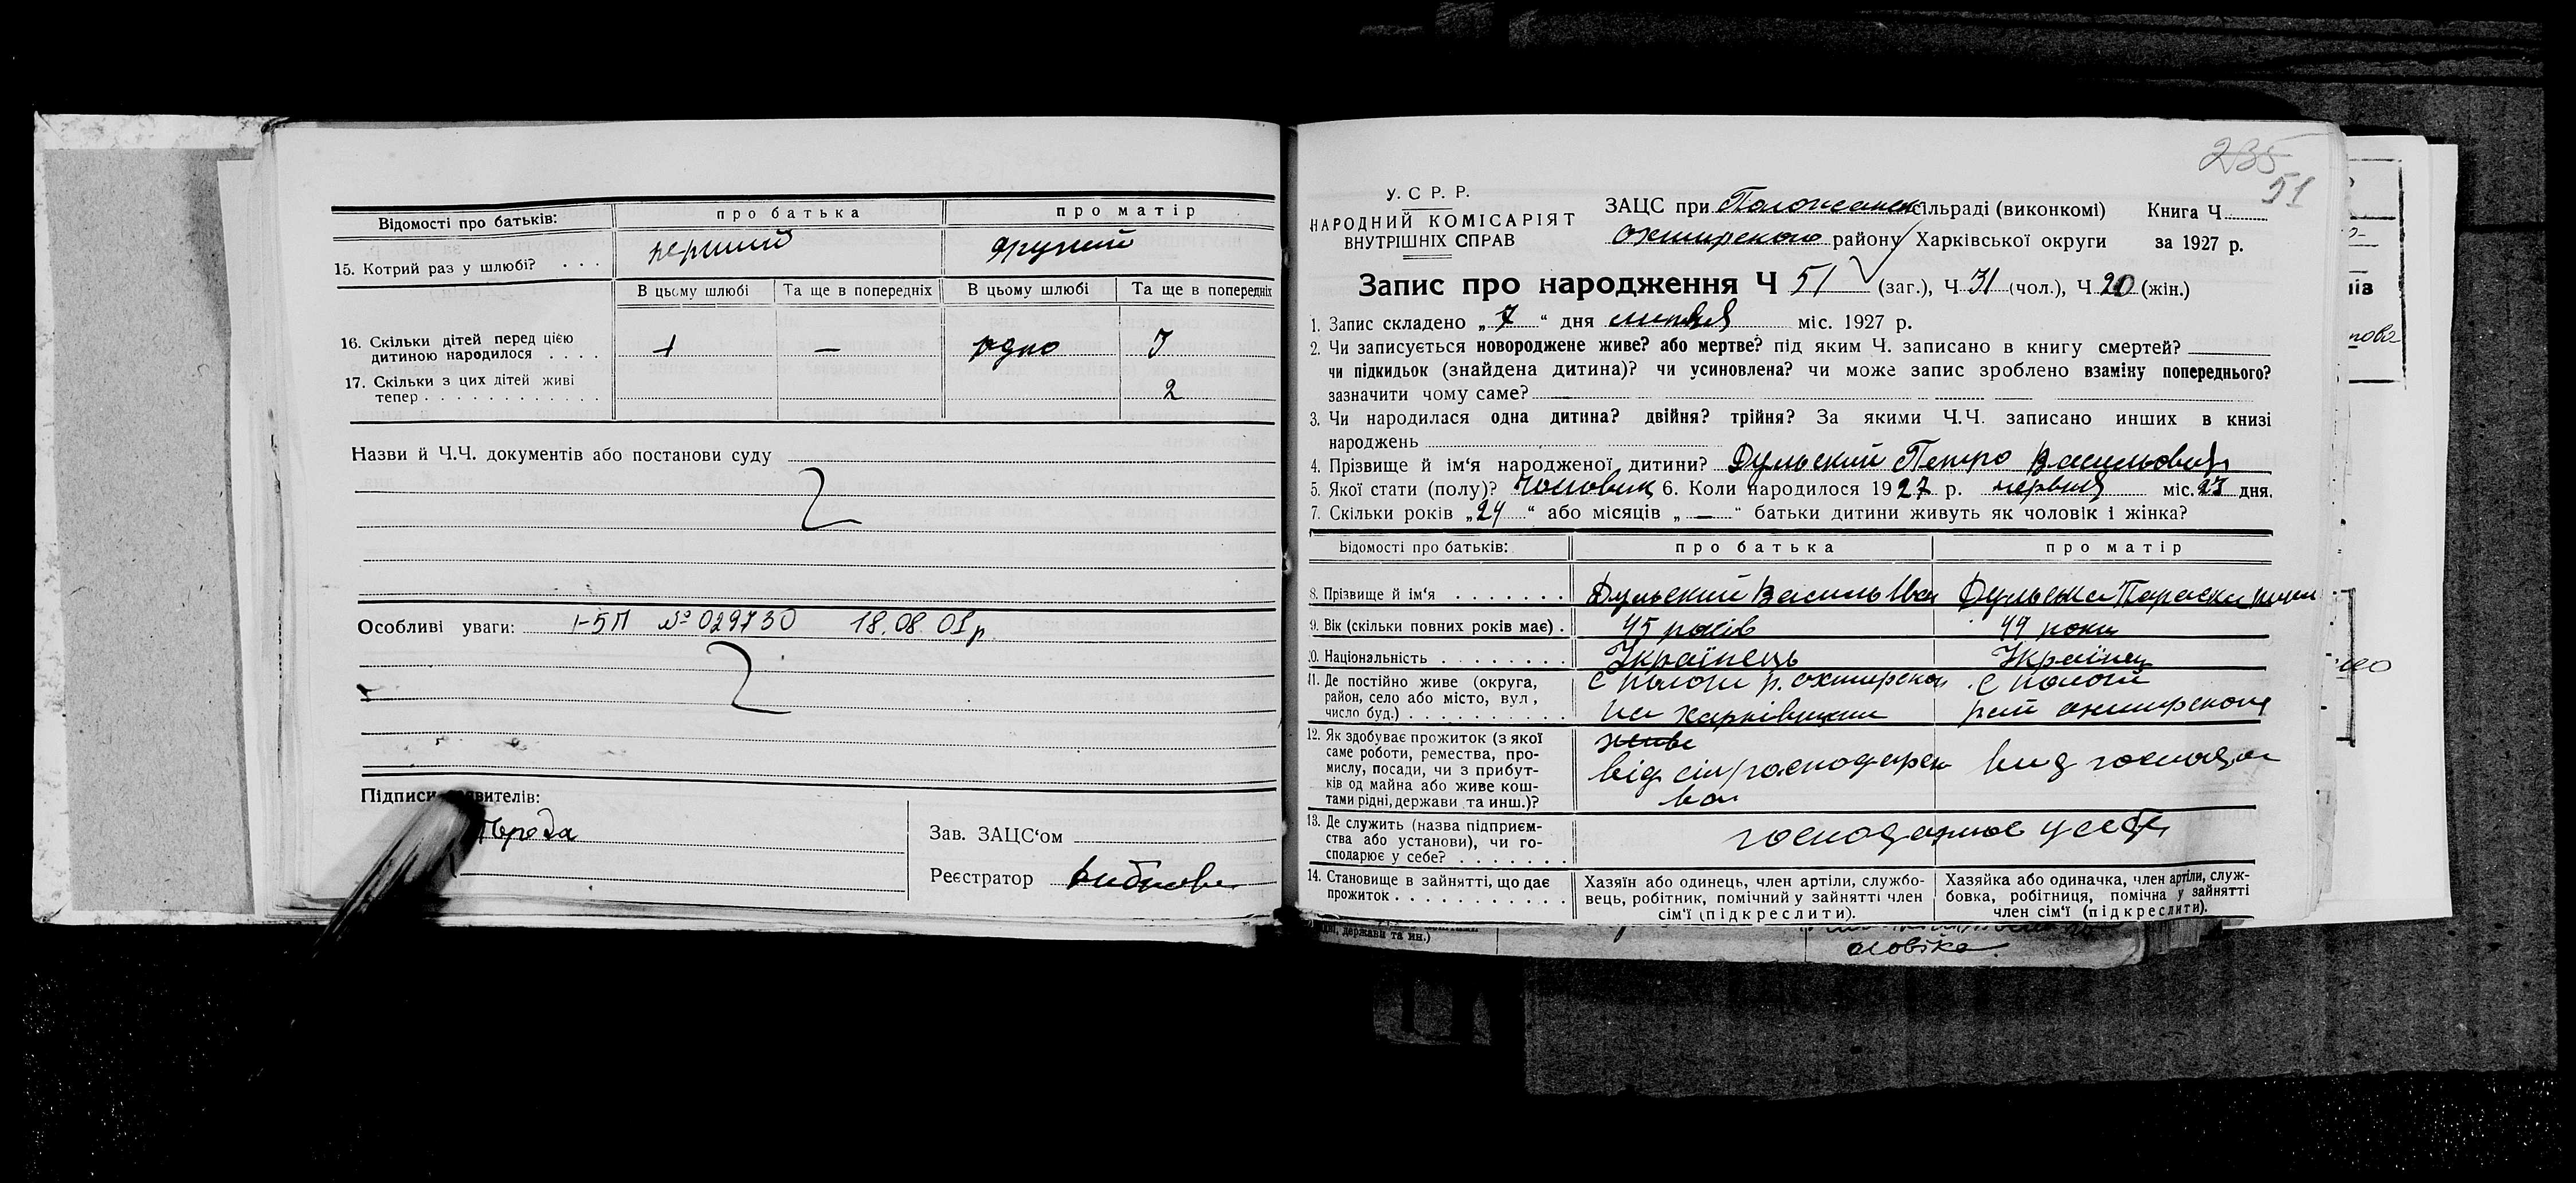 Відомості про батьків: про батька про матір
15. Котрий раз у шлюбі? . . . перший другий
В цьому шлюбі Та ще в попередніх В цьому шлюбі Та ще в попередніх
16. Скільки дітей перед цією
дитиною народилося . . . . — одно 3
17. Скільки з цих дітей живі
тепер . . . . . . . . . . . . 2
Назви й Ч.Ч. документів або постанови суду
Особливі уваги: І-БП № 029730 18.08.01р
Підписи заявителів:
Зав. ЗАЦС'ом
Реєстратор
235
51
У. С. Р. Р.
НАРОДНИЙ КОМІСАРІЯТ
ВНУТРІШНІХ СПРАВ
ЗАЦС при сільраді (виконкомі) Книга Ч.
Охтирского району Харківської округи за 1927 р.
Запис про народження Ч 51 (заг.), Ч 31 (чол.), Ч 20 (жін.)
1. Запис складено „ 7 “ дня липня міс. 1927 р.
2. Чи записується новороджене живе? або мертве? під яким Ч. записано в книгу смертей?
чи підкидьок (знайдена дитина)? чи усиновлена? чи може запис зроблено взаміну попереднього?
зазначити чому саме?
3. Чи народилася одна дитина? двійня? трійня? За якими Ч.Ч. записано инших в книзі
народжень
4. Прізвище й ім'я народженої дитини? Дульский Петро Васильович
5. Якої стати (полу)? чоловік 6. Коли народилося 1927 р. червня міс. 23 дня.
7. Скільки років „24“ або місяців „—“ батьки дитини живуть як чоловік і жінка?
Відомості про батьків: про батька про матір
8. Прізвище й ім'я . . . . . . . Дульский Василь Іван Дульська Параска
9. Вік (скільки повних років має) . 45 років 44 роки
10. Національність . . . . . . . . Українець Українец
11. Де постійно живе (округа,
район, село або місто, вул,
число буд.) . . . . . . . . . .
на Харківщини
12. Як здобуває прожиток (з якої
саме роботи, ремества, про-
мислу, посади, чи з прибут-
ків од майна або живе кош-
тами рідні, держави та инш.)?
живе
від сіл/господарст
ва
13. Де служить (назва підприєм-
ства або установи), чи го-
сподарює у себе? . . . . . . . господарює у себе
14. Становище в зайнятті, що дає
прожиток . . . . . . . . . . .
Хазяїн або одинець, член артіли, службо-
вець, робітник, помічний у зайнятті член
сім'ї (підкреслити).
Хазяйка або одиначка, член артіли, служ-
бовка, робітниця, помічна у зайнятті
член сім'ї (підкреслити).
держави та ин.)